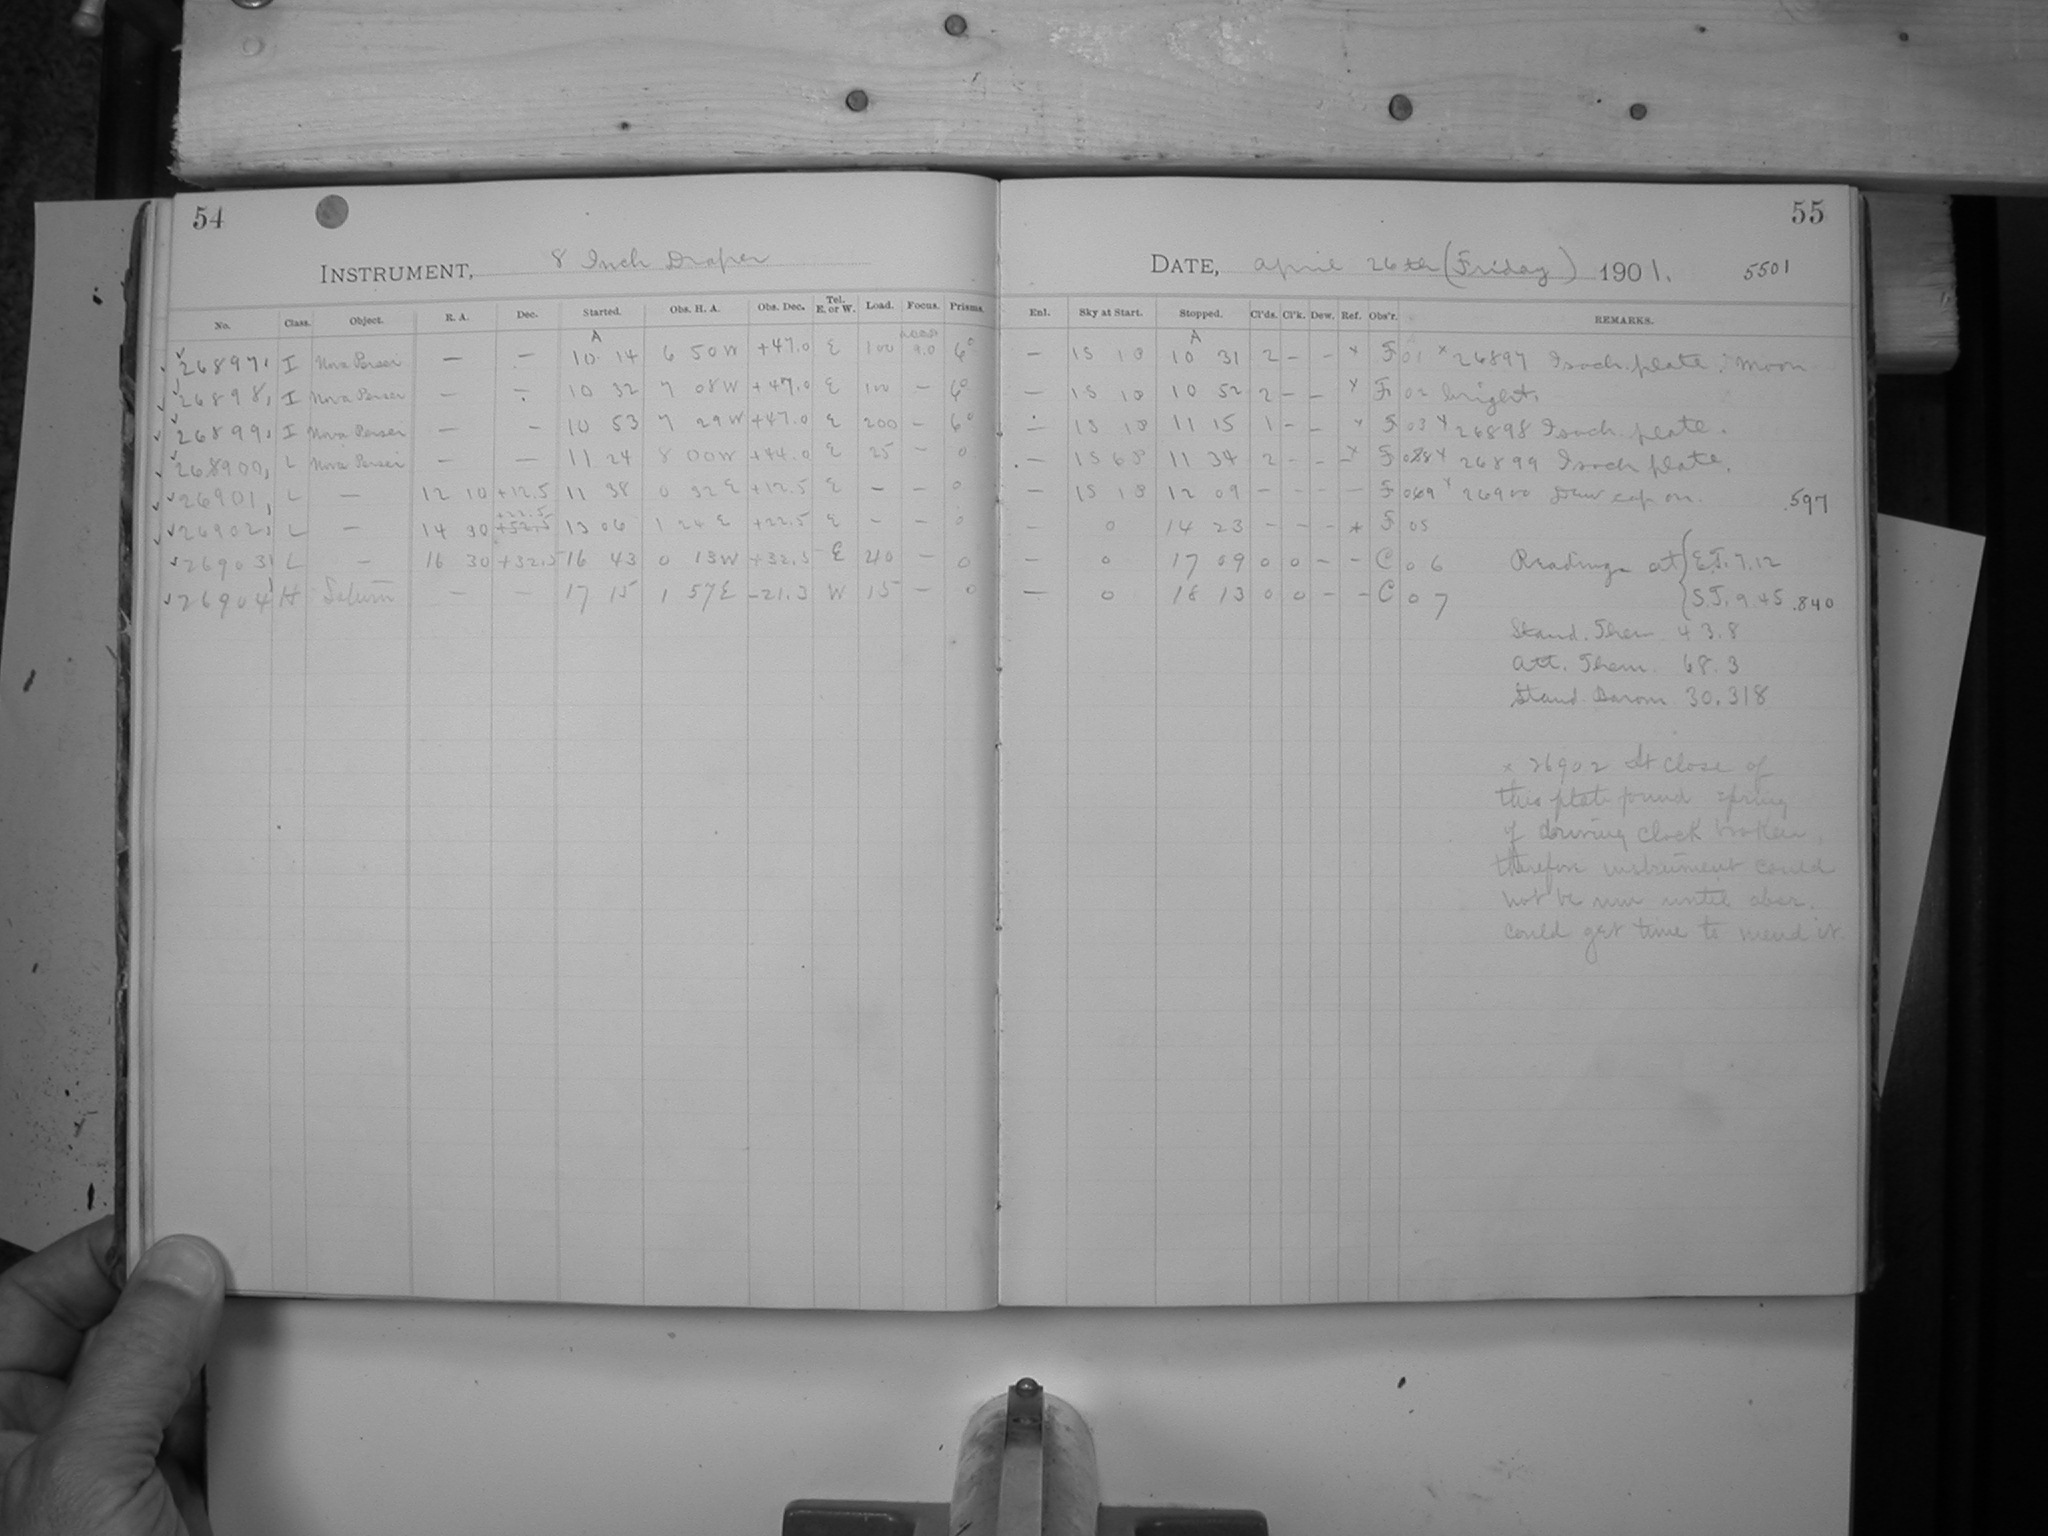 54
55
INSTRUMENT, 8 Inch Draper
DATE, April 26th (Friday) 1901. 5501
No. Class. Object. R. A. Dec. Started. Obs. H. A. Obs. Dec. Tel. E. or W. Load. Focus. Prisms.
Enl. Sky at Start. Stopped. Cl'ds. Cl'k. Dew. Ref. Obs'r. REMARKS.
A
A
26897, I Nova Persei — — 10 14 6 50 W +47.0 E 100 9.0 6° — 1S 10 31 2 – – x F 01 x 26897 Isoch. plate. Moon
26898, I Nova Persei — — 10 32 7 08 W +47.0 E 100 — 6° — 1S 10 52 2 – – x F 02 bright.
26899, I Nova Persei — — 10 53 7 29 W +47.0 E 200 — 6° — 1S 11 15 1 – – x F 03 x 26898 Isoch. plate.
268900, L Nova Persei — — 11 24 8 00 W +44.0 E 25 — 0 — 1S 11 34 2 – – x F x 26899 Isoch plate.
26901, L — 12 10 +12.5 11 38 0 32 E +12.5 E – – 0 — 1S 12 09 – – – – F x 26900 Dew cap on. .597
26902, L — 14 30 +22.5 13 06 1 24 E +22.5 E – – 0 — 0 14 23 – – – x F 05
26903 L — 16 30 +32.5 16 43 0 13 W +32.5 E 40 – 0 — 0 17 09 0 0 – – C 06 Readings at E.T. 7.12
26904 H Saturn — — 17 15 1 57 E –21.3 W 15 – 0 — 0 18 13 0 0 – – C 07 S.T. 9.45 .840
Stand. Ther 43.8
Att. Them. 68.3
Stand Barom 30.318
x 26902 At close of
this plate found spring
of driving clock broken,
therefore instrument could
not be run until obsr.
could get time to mend it